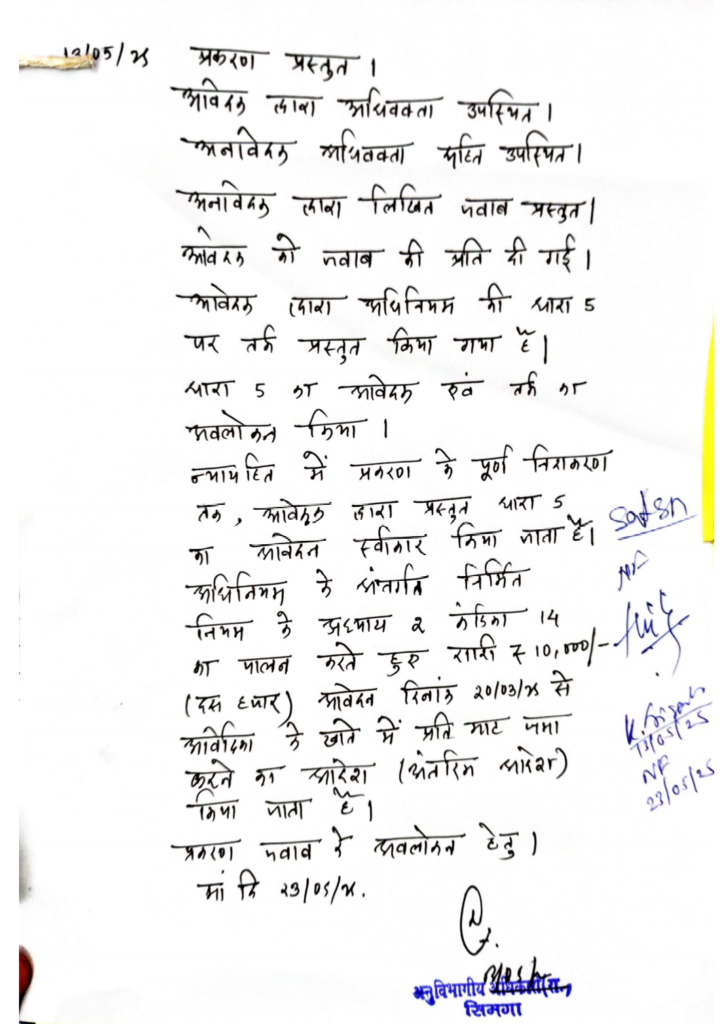 13/05/25 प्रकरण प्रस्तुत ।
आवेदक द्वारा अधिवक्ता उपस्थित ।
अनावेदक अधिवक्ता सहित उपस्थित ।
अनावेदक द्वारा लिखित जवाब प्रस्तुत ।
आवेदक को जवाब की प्रति दी गई ।
आवेदक द्वारा अधिनियम की धारा 5
पर तर्क प्रस्तुत किया गया है ।
धारा 5 का आवेदक एवं तर्क का
अवलोकन किया ।
न्यायहित में प्रकरण के पूर्ण निराकरण
तक, आवेदक द्वारा प्रस्तुत धारा 5
का आवेदन स्वीकार किया जाता है ।
अधिनियम के अंतर्गत निर्मित
नियम के अध्याय 2 कंडिका 14
का पालन करते हुए राशि ₹ 10,000/-
(दस हजार) आवेदन दिनांक 20/03/25 से
आवेदिका के खाते में प्रति माह जमा
करने का आदेश (अंतरिम आदेश)
किया जाता है ।
प्रकरण जवाब के अवलोकन हेतु ।
23/05/25.
NF
13/05/25
NF
23/05/25
अनुविभागीय अधिकारी(रा.)
सिमगा